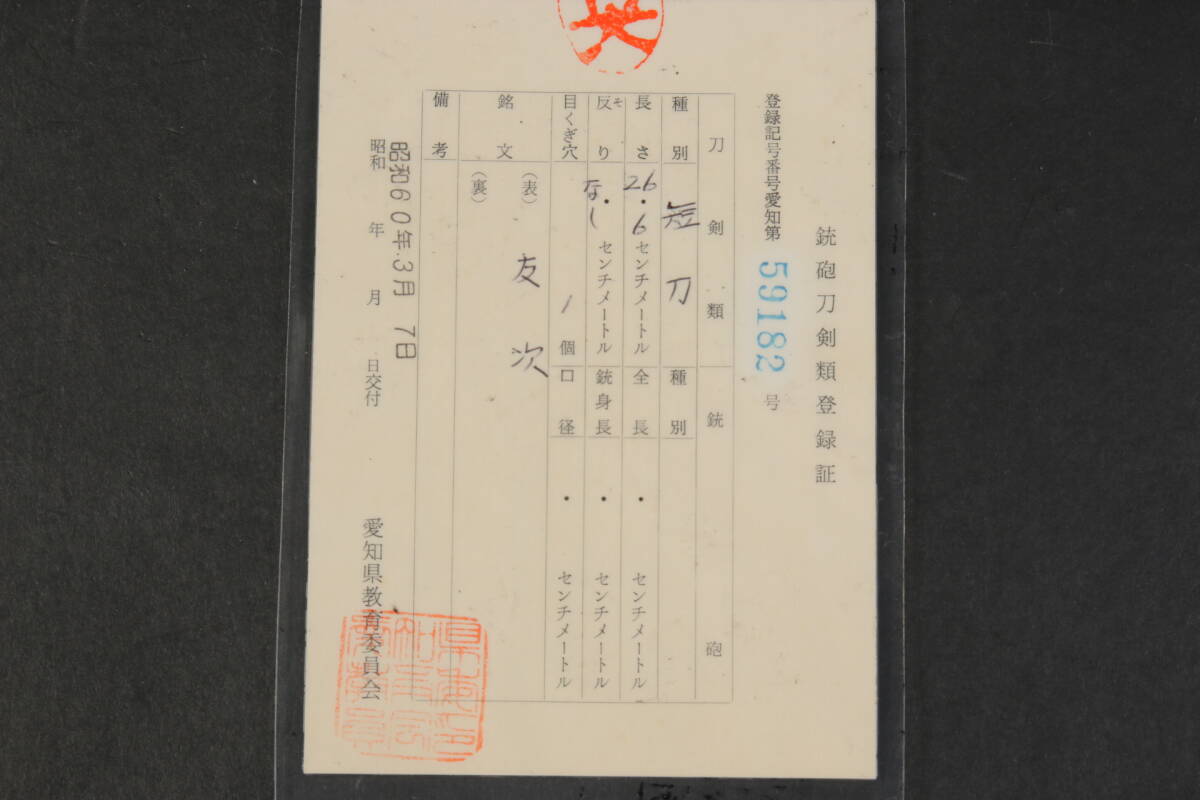 銃砲刀剣類登録証
登録記号番号愛知第 59182 号
刀剣類 銃砲
種別 短刀 種別
長さ 26.6 センチメートル 全長 ・ センチメートル
反り そ なし ・ センチメートル 銃身長 ・ センチメートル
目くぎ穴 1 個 口径 ・ センチメートル
銘文 (表) 友次
(裏)
備考
昭和60年3月7日
昭和 年 月 日交付
愛知県教育委員会